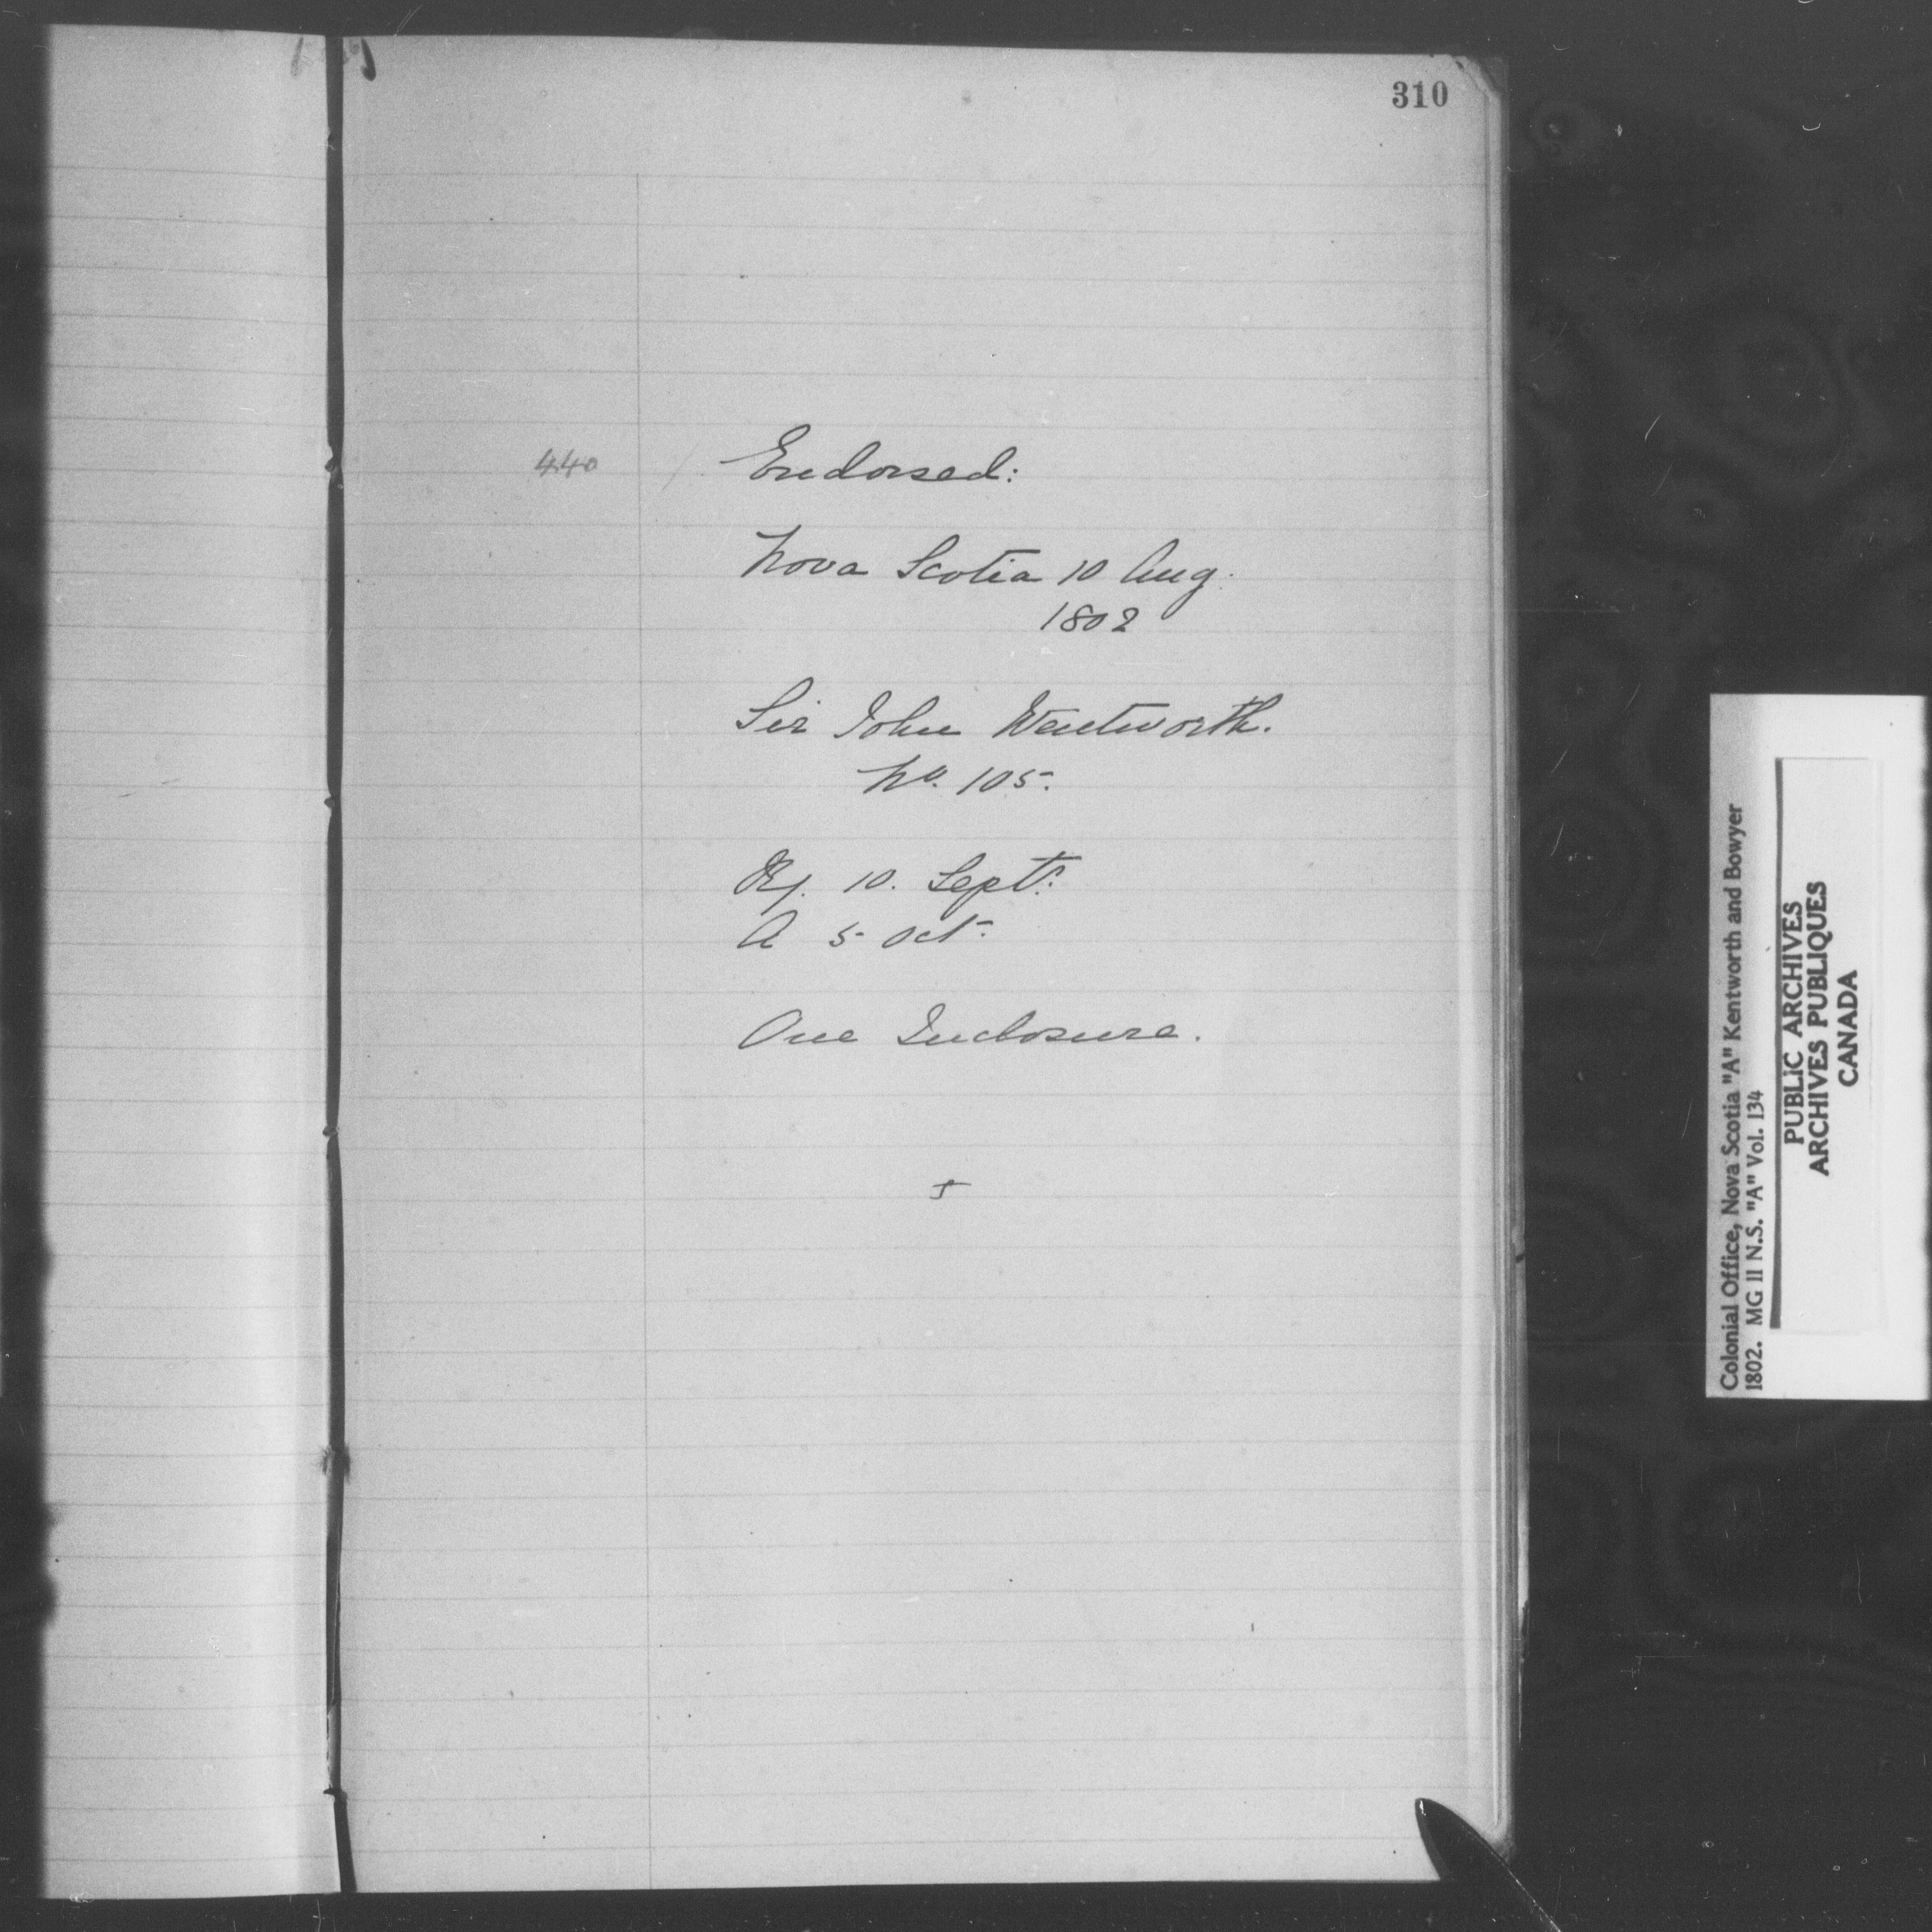 310
440
Endorsed:
Nova Scotia 10 Aug.
1802
Sir John Wentworth.
No. 105.
10. Sept.
A 5 Oct.
One Inclosure.
Colonial Office, Nova Scotia "A" Kentworth and Bowyer
1802. MG 11 N.S. "A" Vol. 134
PUBLIC ARCHIVES
ARCHIVES PUBLIQUES
CANADA